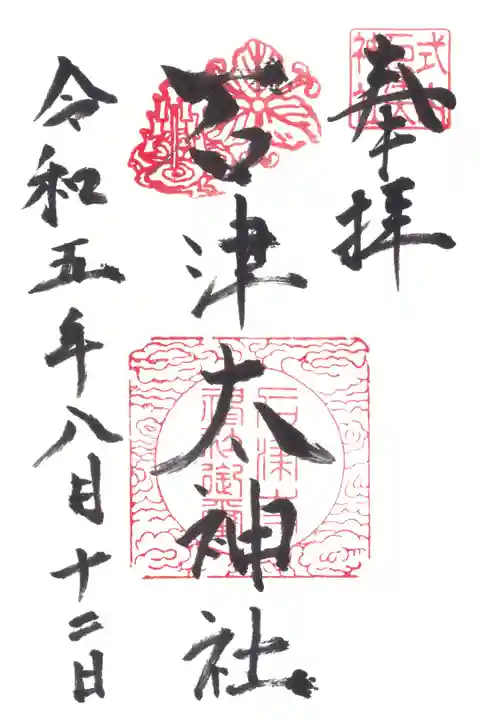 奉拝
石津太神社
令和五年八月十二日